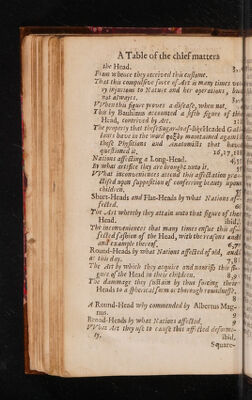 A Table of the chief matters
the Head.
From whence they received this custome.
That this compulsive force of Art is many times very
ry injurious to Nature and her operations, but
not alwayes.
VVhen this figure proves a disease, when not.
This by Bauhinus accounted a fifth figure of the
Head, contrived by Art.
The property that these Sugar-loaf-like Headed Gal-
lants have in the word
these Physitians and Anatomists that have
questioned it. 16,17,18
Nations affecting a Long-Head.
By what artifice they are brought unto it.
VVhat inconveniences attend this affectation pra-
ctised upon supposition of conferring beauty upon
children.
Short-Heads and Flat-Heads by what Nations af-
fected.
The Art whereby they attain unto that figure of the
Head. ibid.
The inconveniences that many times ensue this af-
fected fashion of the Head, with the reasons and
and example thereof. 6,7
Round-Heads by what Nations affected of old, and
at this day. 7,8
The Art by which they acquire and nourish this fi-
gure of the Head in their children. 8,9
The dammage they sustain by thus forcing their
Heads to a spherical form or thorough roundnesse.
8
A Round-Head why commended by Albertus Mag-
nus. 9
Broad-Heads by what Nations affected,
VVhat Art they use to cause this affected deformi-
ty, ibid.
Square-